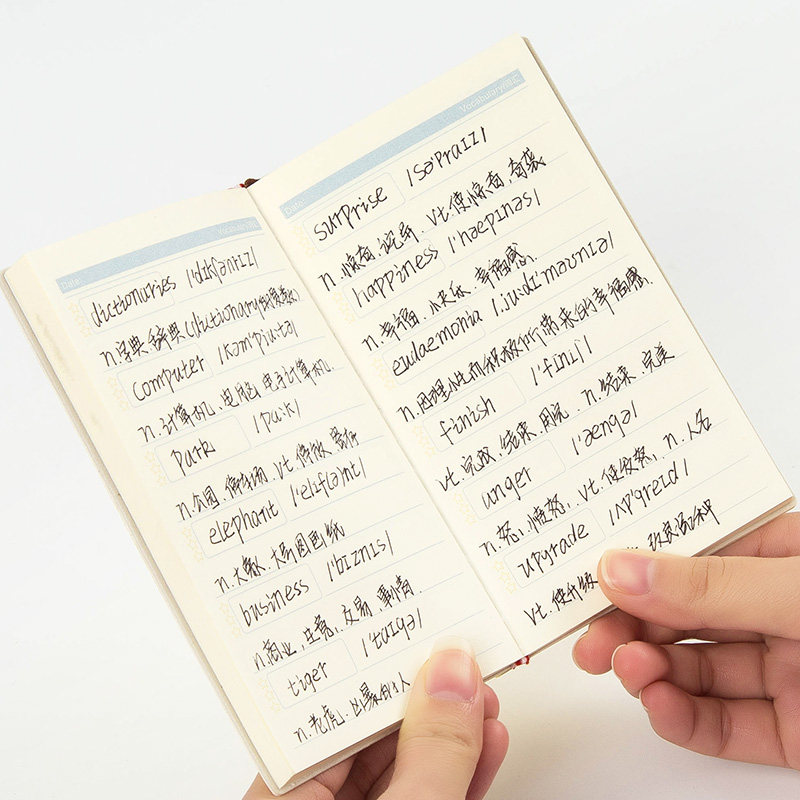 Vocabulary
Date:
dictionaries /'dɪkʃənrɪz/
n.字典.辞典(dictionary的
computer /kəm'pju:tə/
n.计算机.电脑.电子计算机.
park /pa:k/
n.公园.停车场.vt.停放.
elephant /'elɪfənt/
n.大象.大号图画纸
business /'bɪznɪs/
n.商业,生意,交易,事情.
tiger /'taɪgə/
n.老虎.凶暴的人
Vocabulary
Date:
surprise /sə'praɪz/
n.惊奇.诧异.vt.使惊奇.奇袭
happiness /'hæpɪnəs/
n.幸福.小快乐.幸福感.
eudaemonia /.ju:di'məʊnɪə/
n.因理性而积极所带来的幸福感.
finish /'fɪnɪʃ/
vt.完成.结束.用完.n.结束.完美
anger /'æŋgə/
n.怒,愤怒.vt.使发怒.n.人名
upgrade /ʌp'greɪd/
vt.使升级 改良